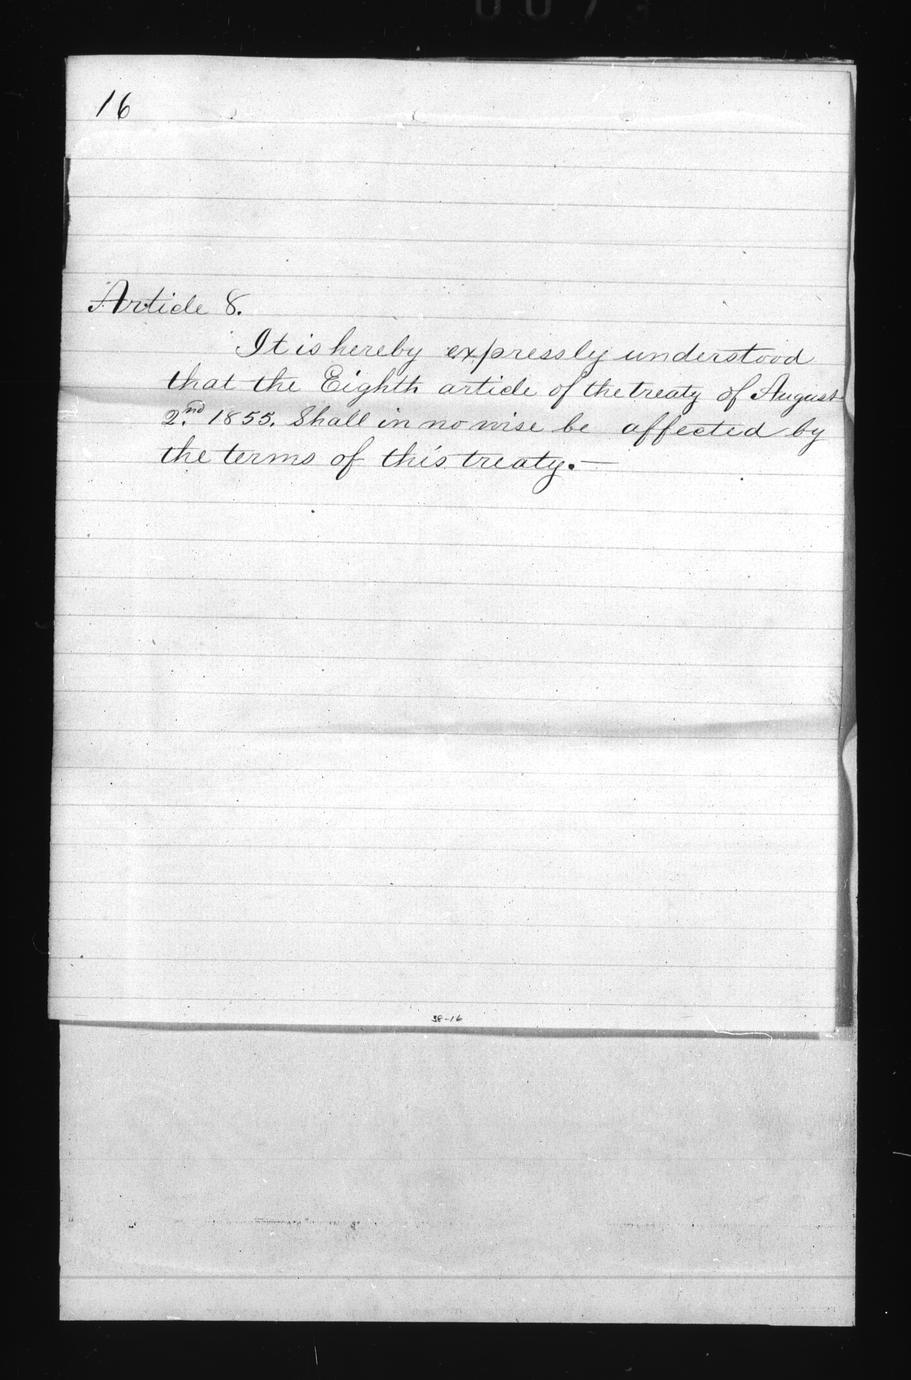 16
Article 8.
It is hereby expressly understood
that the Eighth article of the treaty of August
2nd 1855. Shall in no wise be affected by
the terms of this treaty. —
38-16